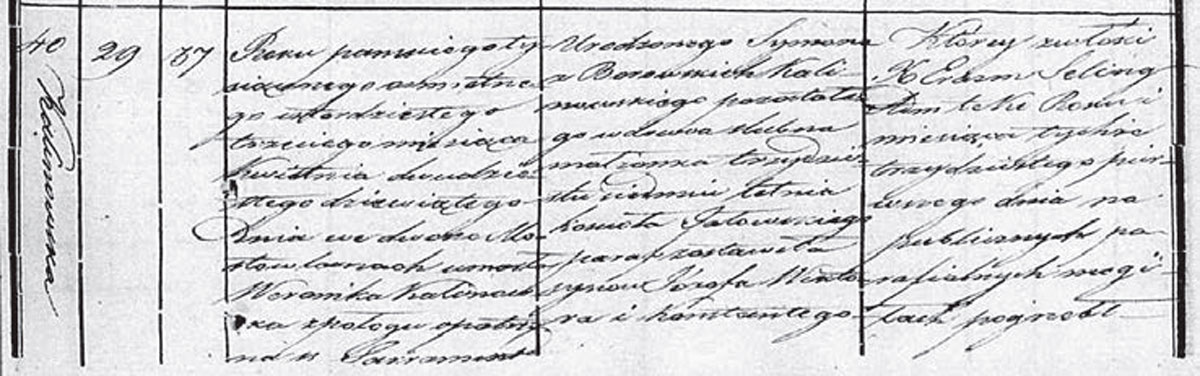 40 Kalinowska
29
37
Roku pańskiego ty-
siącznego osmsetne-
go czterdziestego
trzeciego miesiąca
Kwietnia dwudzie-
stego dziewiątego
Dnia we dworze Mo-
stowlanach umarła
Weronika Kalinow-
ska z połogu
na Sakramenta
Urodzonego Symona
z Borowskich Kali-
nowskiego pozostałe-
go wdowca slubna
małżonka trzydzie-
stu siedmiu letnia
kościoła Jałowskiego
paraf zostawiła
synów Józefa Wikto-
ra i Konstantego
Którey zwłoki
X Erazm Seling
Roku i
miesiąca tychże
trzydziestego pier-
wszego dnia na
publicznych pa-
rafialnych mogi-
łach pogrzebł